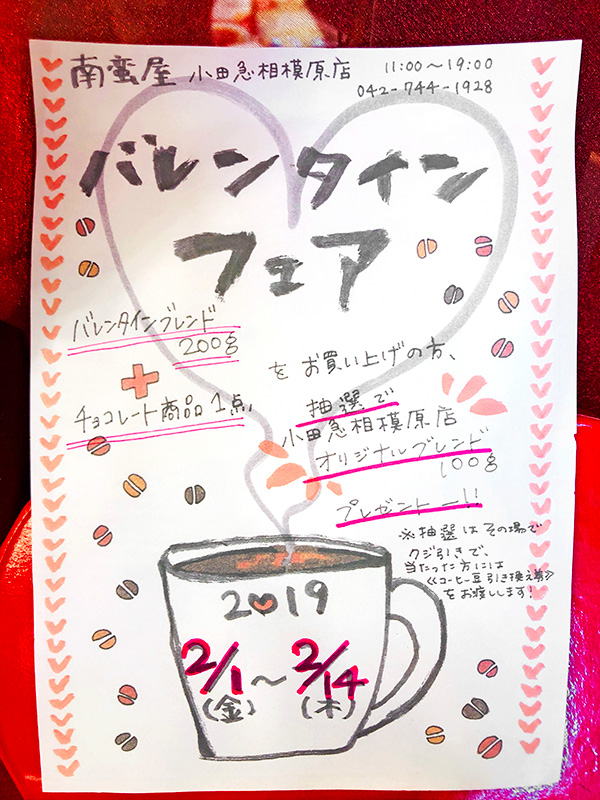 南蛮屋 小田急相模原店 11:00～19:00
042-744-1928
バレンタイン
フェア
バレンタインブレンド
200g
+
チョコレート商品1点
をお買い上げの方、
抽選で
小田急相模原店
オリジナルブレンド
100g
プレゼントー!!
※抽選はその場で
クジ引きで、
当たった方には
《コーヒー豆引き換え券》
をお渡しします!
2019
2/1～2/14
(金) (木)